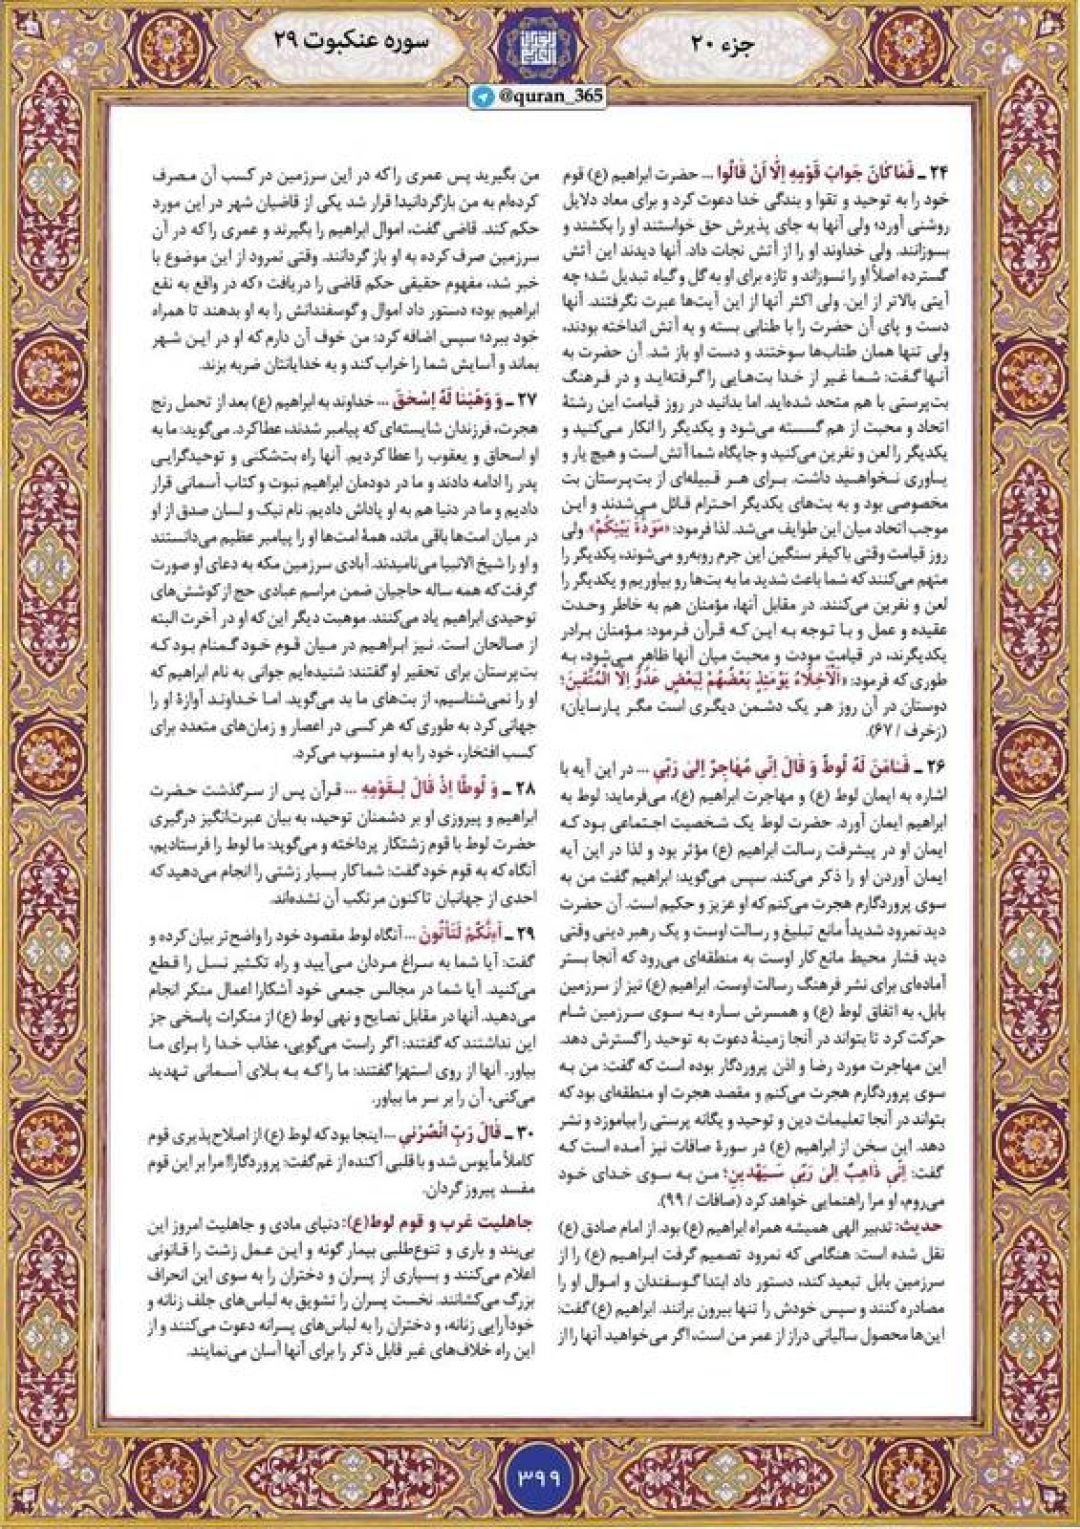 جزء ۲۰
سوره عنکبوت ۲۹
@quran_365
۲۴ ـ فَمَا كَانَ جَوَابَ قَوْمِهِ اِلَّا اَنْ قَالُوا ... حضرت ابراهیم (ع) قوم
خود را به توحید و تقوا و بندگی خدا دعوت کرد و برای معاد دلایل
روشنی آورد؛ ولی آنها به جای پذیرش حق خواستند او را بکشند و
بسوزانند. ولی خداوند او را از آتش نجات داد. آنها دیدند این آتش
گسترده اصلاً او را نسوزاند و تازه برای او به گل و گیاه تبدیل شد؛ چه
آیتی بالاتر از این. ولی اکثر آنها از این آیت‌ها عبرت نگرفتند. آنها
دست و پای آن حضرت را با طنابی بسته و به آتش انداخته بودند،
ولی تنها همان طناب‌ها سوختند و دست او باز شد. آن حضرت به
آنها گفت: شما غیر از خدا بت‌هایی را گرفته‌اید و در فرهنگ
بت‌پرستی با هم متحد شده‌اید. اما بدانید در روز قیامت این رشتهٔ
اتحاد و محبت از هم گسسته می‌شود و یکدیگر را انکار می‌کنید و
یکدیگر را لعن و نفرین می‌کنید و جایگاه شما آتش است و هیچ یار و
یاوری نخواهید داشت. برای هر قبیله‌ای از بت‌پرستان بت
مخصوصی بود و به بت‌های یکدیگر احترام قائل می‌شدند و این
موجب اتحاد میان این طوایف می‌شد. لذا فرمود: «مَوَدَّةَ بَيْنِكُمْ». ولی
روز قیامت وقتی با کیفر سنگین این جرم روبه‌رو می‌شوند، یکدیگر را
متهم می‌کنند که شما باعث شدید ما به بت‌ها رو بیاوریم و یکدیگر را
لعن و نفرین می‌کنند. در مقابل آنها، مؤمنان هم به خاطر وحدت
عقیده و عمل و با توجه به این که قرآن فرمود: مؤمنان برادر
یکدیگرند، در قیامت مودت و محبت میان آنها ظاهر می‌شود، به
طوری که فرمود: «اَلْاَخِلَّاءُ يَوْمَئِذٍ بَعْضُهُمْ لِبَعْضٍ عَدُوٌّ اِلَّا الْمُتَّقِينَ؛
دوستان در آن روز هر یک دشمن دیگری است مگر پارسایان»
(زخرف / ۶۷).
۲۶ ـ فَآمَنَ لَهُ لُوطٌ وَ قَالَ اِنِّي مُهَاجِرٌ اِلٰى رَبِّي ... در این آیه با
اشاره به ایمان لوط (ع) و مهاجرت ابراهیم (ع)، می‌فرماید: لوط به
ابراهیم ایمان آورد. حضرت لوط یک شخصیت اجتماعی بود که
ایمان او در پیشرفت رسالت ابراهیم (ع) مؤثر بود و لذا در این آیه
ایمان آوردن او را ذکر می‌کند. سپس می‌گوید: ابراهیم گفت من به
سوی پروردگارم هجرت می‌کنم که او عزیز و حکیم است. آن حضرت
دید نمرود شدیداً مانع تبلیغ و رسالت اوست و یک رهبر دینی وقتی
دید فشار محیط مانع کار اوست به منطقه‌ای می‌رود که آنجا بستر
آماده‌ای برای نشر فرهنگ رسالت اوست. ابراهیم (ع) نیز از سرزمین
بابل، به اتفاق لوط (ع) و همسرش ساره به سوی سرزمین شام
حرکت کرد تا بتواند در آنجا زمینهٔ دعوت به توحید را گسترش دهد.
این مهاجرت مورد رضا و اذن پروردگار بوده است که گفت: من به
سوی پروردگارم هجرت می‌کنم و مقصد هجرت او منطقه‌ای بود که
بتواند در آنجا تعلیمات دین و توحید و یگانه پرستی را بیاموزد و نشر
دهد. این سخن از ابراهیم (ع) در سورهٔ صافات نیز آمده است که
گفت: اِنِّي ذَاهِبٌ اِلٰى رَبِّي سَيَهْدِينِ؛ من به سوی خدای خود
می‌روم، او مرا راهنمایی خواهد کرد (صافات / ۹۹).
حدیث: تدبیر الهی همیشه همراه ابراهیم (ع) بود. از امام صادق (ع)
نقل شده است: هنگامی که نمرود تصمیم گرفت ابراهیم (ع) را از
سرزمین بابل تبعید کند، دستور داد ابتدا گوسفندان و اموال او را
مصادره کنند و سپس خودش را تنها بیرون برانند. ابراهیم (ع) گفت:
این‌ها محصول سالیانی دراز از عمر من است، اگر می‌خواهید آنها را از
من بگیرید پس عمری را که در این سرزمین در کسب آن مصرف
کرده‌ام به من بازگردانید! قرار شد یکی از قاضیان شهر در این مورد
حکم کند. قاضی گفت، اموال ابراهیم را بگیرند و عمری را که در آن
سرزمین صرف کرده به او باز گردانند. وقتی نمرود از این موضوع با
خبر شد، مفهوم حقیقی حکم قاضی را دریافت «که در واقع به نفع
ابراهیم بود» دستور داد اموال و گوسفندانش را به او بدهند تا همراه
خود ببرد؛ سپس اضافه کرد: من خوف آن دارم که او در این شهر
بماند و آسایش شما را خراب کند و به خدایانتان ضربه بزند.
۲۷ ـ وَ وَهَبْنَا لَهُ اِسْحٰقَ ... خداوند به ابراهیم (ع) بعد از تحمل رنج
هجرت، فرزندان شایسته‌ای که پیامبر شدند، عطا کرد. می‌گوید: ما به
او اسحاق و یعقوب را عطا کردیم. آنها راه بت‌شکنی و توحیدگرایی
پدر را ادامه دادند و ما در دودمان ابراهیم نبوت و کتاب آسمانی قرار
دادیم و ما در دنیا هم به او پاداش دادیم. نام نیک و لسان صدق از او
در میان امت‌ها باقی ماند، همهٔ امت‌ها او را پیامبر عظیم می‌دانستند
و او را شیخ الانبیا می‌نامیدند. آبادی سرزمین مکه به دعای او صورت
گرفت که همه ساله حاجیان ضمن مراسم عبادی حج از کوشش‌های
توحیدی ابراهیم یاد می‌کنند. موهبت دیگر این که او در آخرت البته
از صالحان است. نیز ابراهیم در میان قوم خود گمنام بود که
بت‌پرستان برای تحقیر او گفتند: شنیده‌ایم جوانی به نام ابراهیم که
او را نمی‌شناسیم، از بت‌های ما بد می‌گوید. اما خداوند آوازهٔ او را
جهانی کرد به طوری که هر کسی در اعصار و زمان‌های متعدد برای
کسب افتخار، خود را به او منسوب می‌کرد.
۲۸ ـ وَ لُوطًا اِذْ قَالَ لِقَوْمِهِ ... قرآن پس از سرگذشت حضرت
ابراهیم و پیروزی او بر دشمنان توحید، به بیان عبرت‌انگیز درگیری
حضرت لوط با قوم زشتکار پرداخته و می‌گوید: ما لوط را فرستادیم،
آنگاه که به قوم خود گفت: شما کار بسیار زشتی را انجام می‌دهید که
احدی از جهانیان تاکنون مرتکب آن نشده‌اند.
۲۹ ـ اَئِنَّكُمْ لَتَأْتُونَ ... آنگاه لوط مقصود خود را واضح‌تر بیان کرده و
گفت: آیا شما به سراغ مردان می‌آیید و راه تکثیر نسل را قطع
می‌کنید. آیا شما در مجالس جمعی خود آشکارا اعمال منکر انجام
می‌دهید. آنها در مقابل نصایح و نهی لوط (ع) از منکرات پاسخی جز
این نداشتند که گفتند: اگر راست می‌گویی، عذاب خدا را برای ما
بیاور. آنها از روی استهزا گفتند: ما را که به بلای آسمانی تهدید
می‌کنی، آن را بر سر ما بیاور.
۳۰ ـ قَالَ رَبِّ انْصُرْنِي ... اینجا بود که لوط (ع) از اصلاح‌پذیری قوم
کاملاً مأیوس شد و با قلبی آکنده از غم گفت: پروردگارا! مرا بر این قوم
مفسد پیروز گردان.
جاهلیت غرب و قوم لوط(ع): دنیای مادی و جاهلیت امروز این
بی‌بند و باری و تنوع‌طلبی بیمار گونه و این عمل زشت را قانونی
اعلام می‌کنند و بسیاری از پسران و دختران را به سوی این انحراف
بزرگ می‌کشانند. نخست پسران را تشویق به لباس‌های جلف زنانه و
خودآرایی زنانه، و دختران را به لباس‌های پسرانه دعوت می‌کنند و از
این راه خلاف‌های غیر قابل ذکر را برای آنها آسان می‌نمایند.
۳۹۹